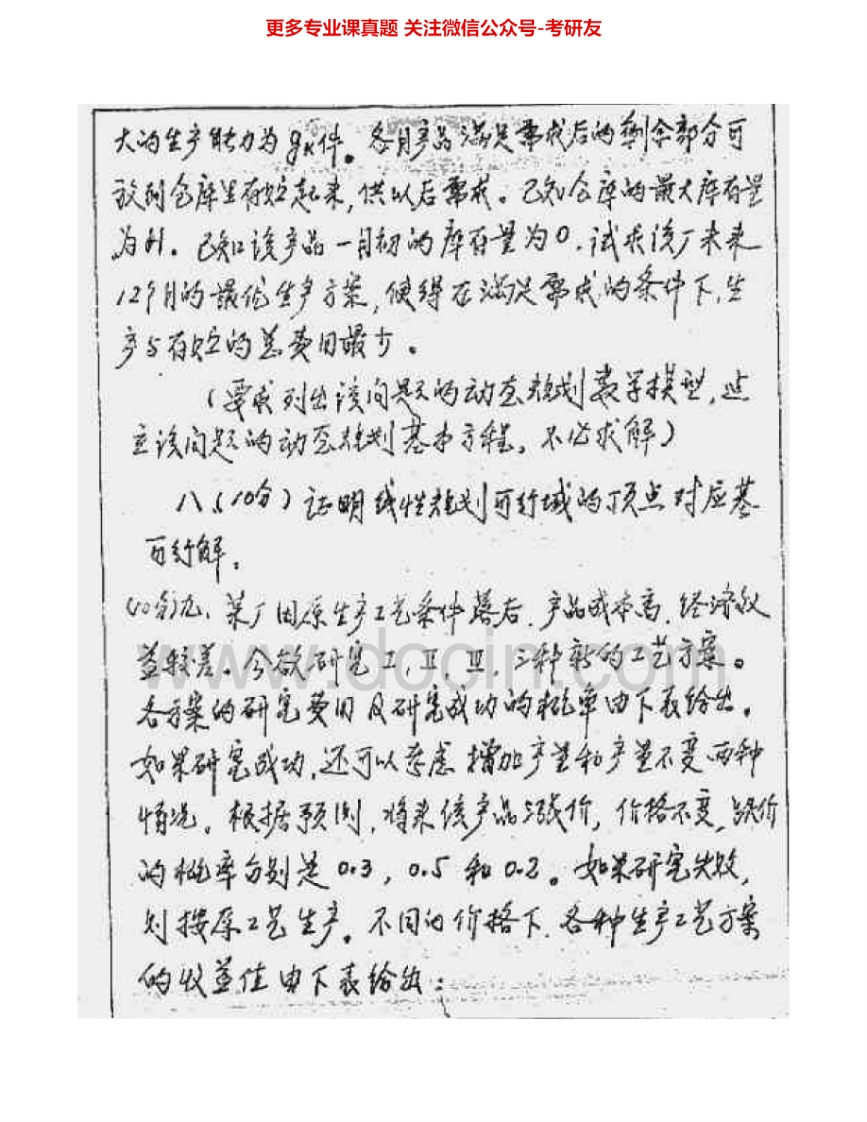 更多专业课真题 关注微信公众号-考研友
大的生产能力为gK件。各月产品满足需求后的剩余部分可
放到仓库里存贮起来,供以后需求。已知仓库的最大库存量
为H。已知该产品一月初的库存量为0.试求该厂未来
12个月的最优生产方案,使得在满足需求的条件下,生
产与存贮的总费用最少。
(要求列出该问题的动态规划数学模型,建
立该问题的动态规划基本方程,不必求解)
八、(10分)证明线性规划可行域的顶点对应基
可行解。
(10分)九、某厂因原生产工艺条件落后,产品成本高,经济效
益较差。今欲研究I,II,III,三种新的工艺方案。
www.docin.com
各方案的研究费用及研究成功的概率由下表给出。
如果研究成功,还可以考虑增加产量和产量不变两种
情况。根据预测,将来该产品涨价,价格不变,跌价
的概率分别是0.3,0.5和0.2。如果研究失败,
则按原工艺生产。不同的价格下,各种生产工艺方案
的收益值由下表给出: